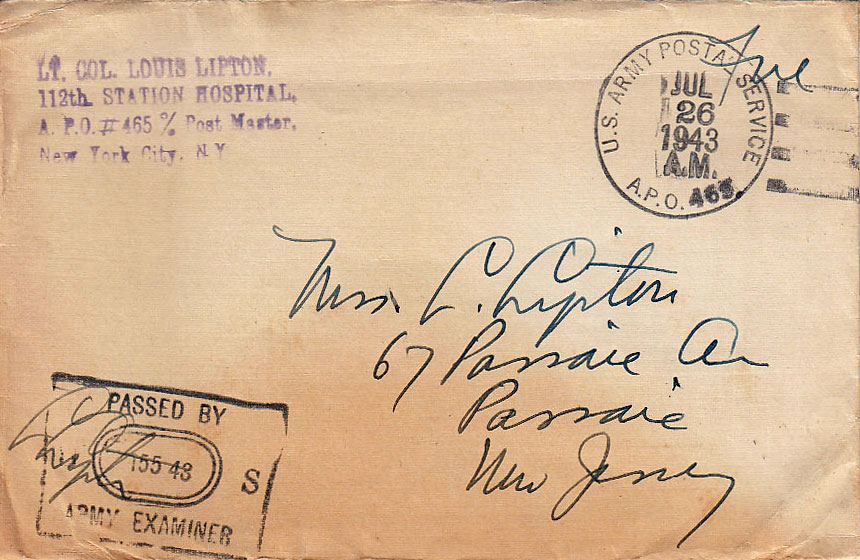 LT. COL. LOUIS LIPTON.
112th. STATION HOSPITAL.
A. P.O. #465 % Post Master,
New York City. N Y
Free
U.S. ARMY POSTAL SERVICE
JUL
26
1943
A.M.
A.P.O. 465
Mrs. C. Lipton
67 Passaic Av
Passaic
New Jersey
PASSED BY
U S
15543
ARMY EXAMINER
Lipton